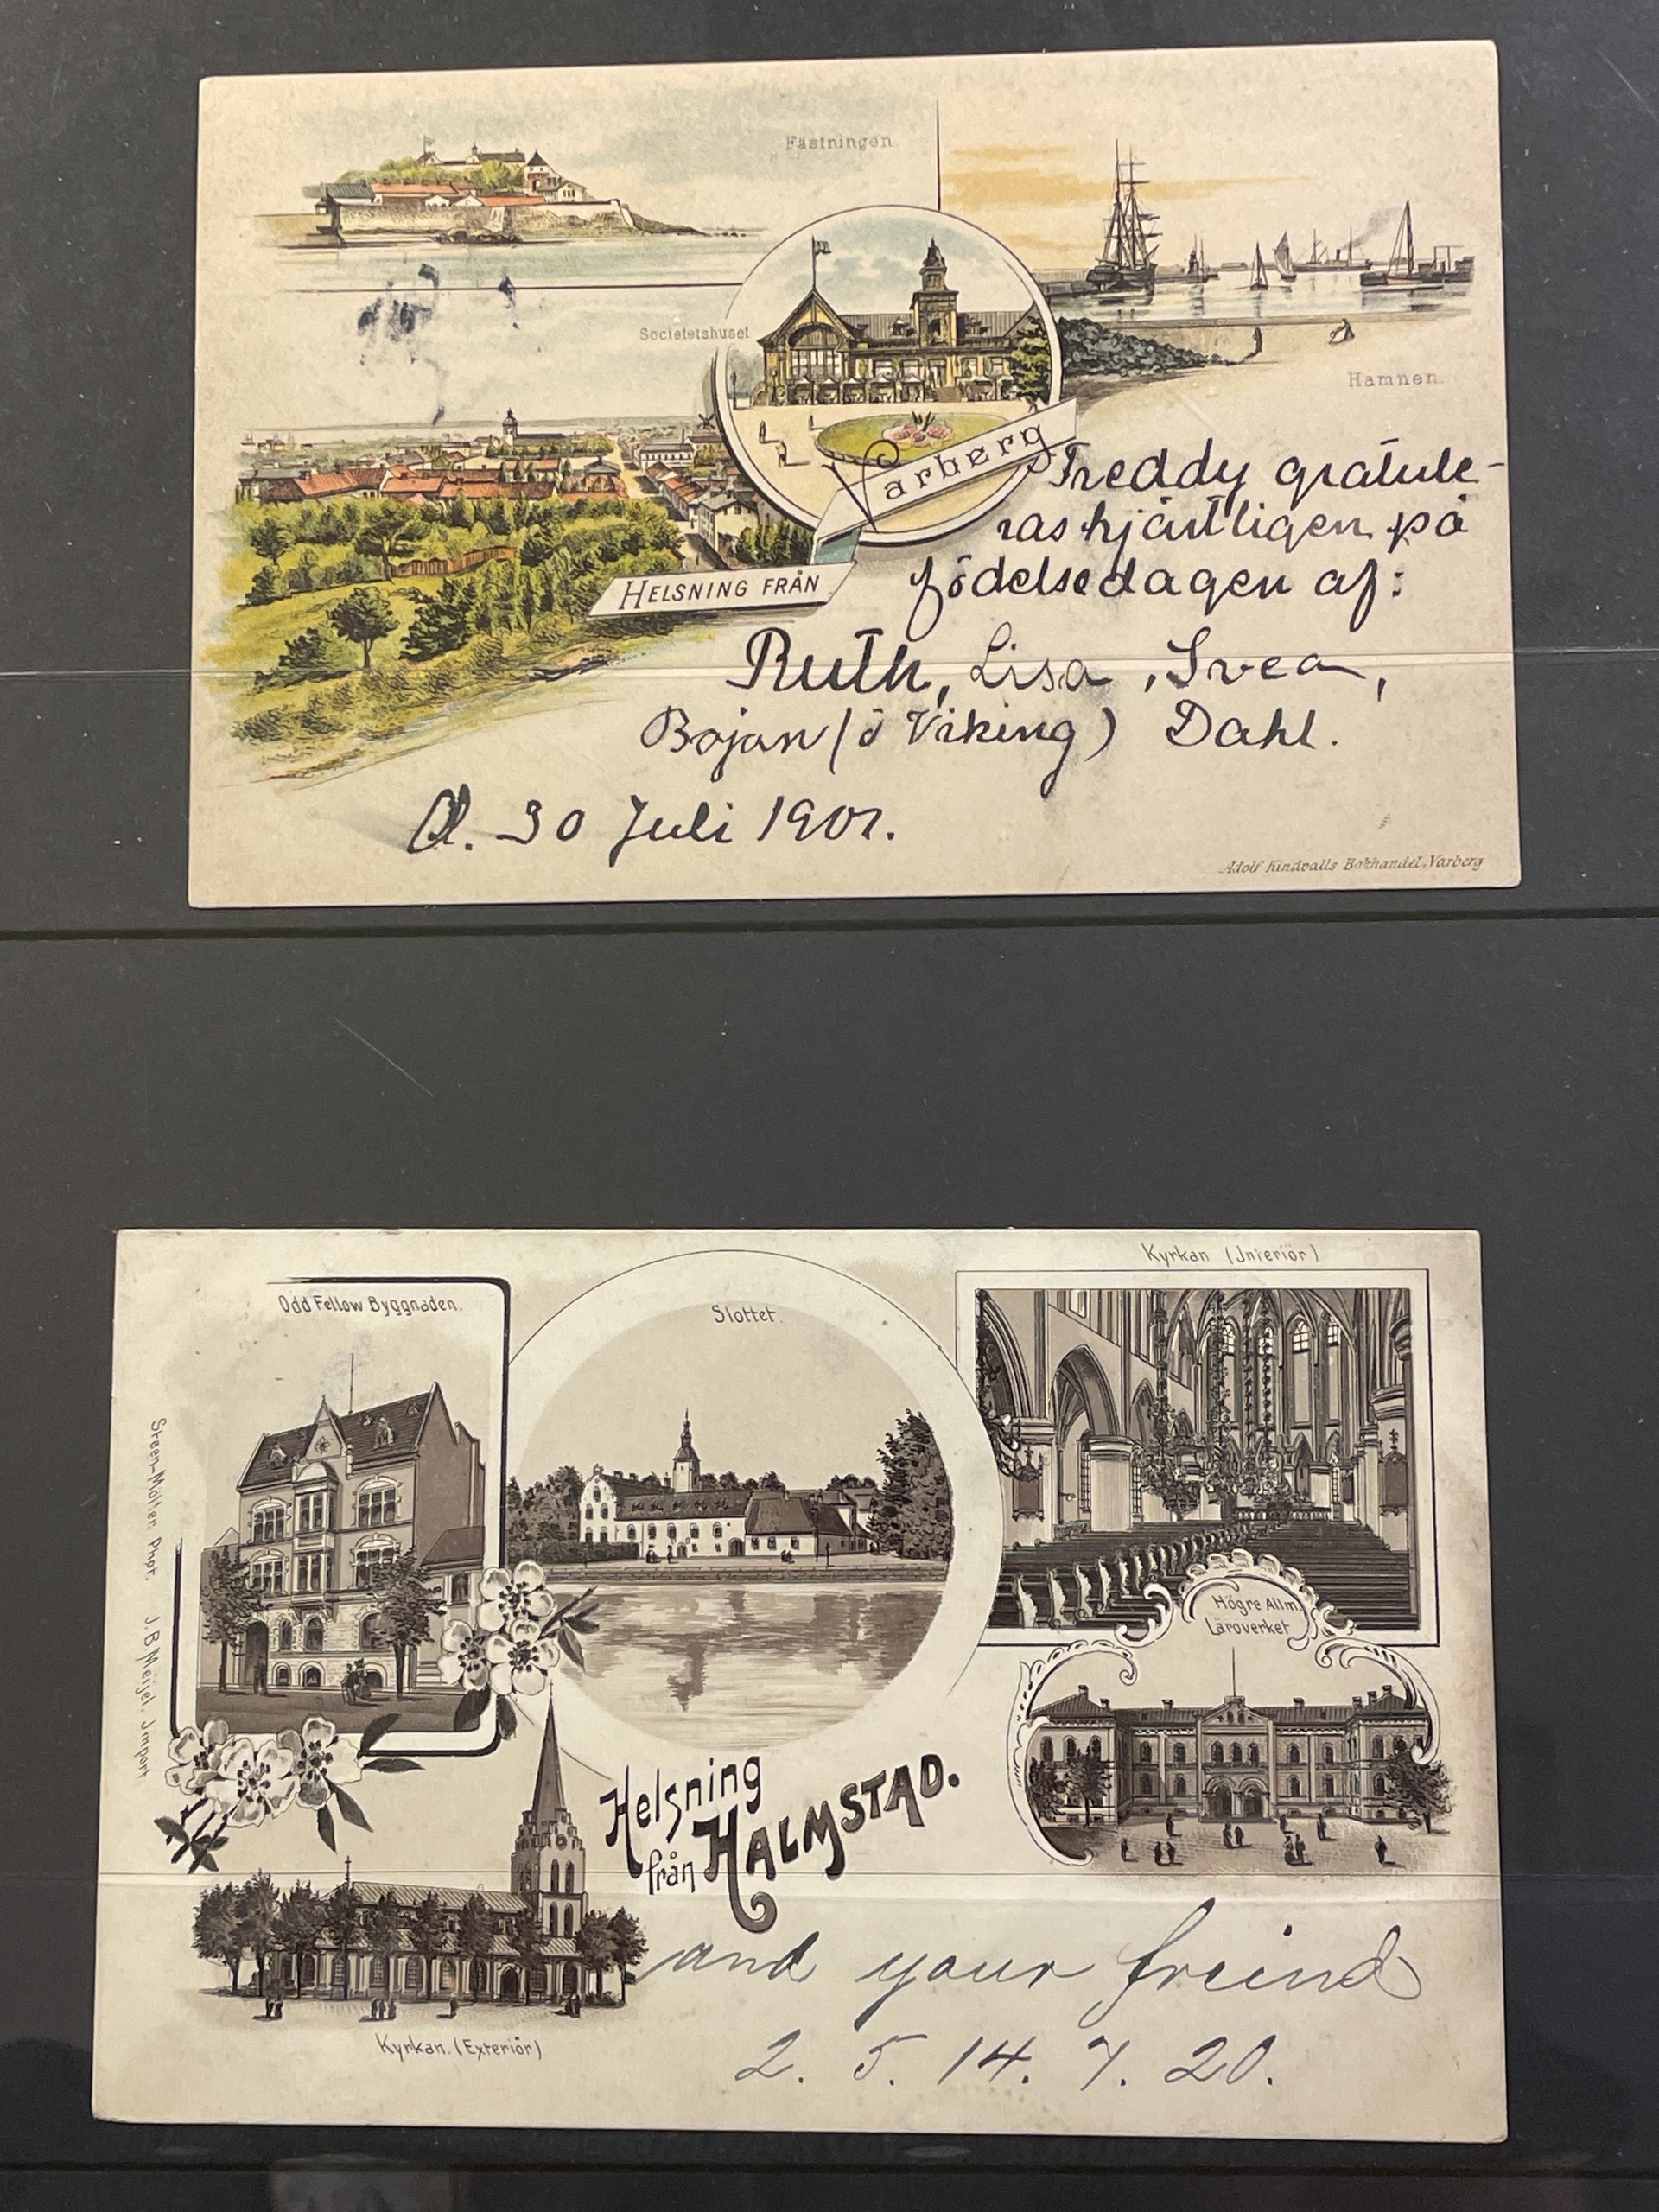 Fästningen.
Societetshuset
Hamnen.
HELSNING FRÅN
Varberg
Freddy gratule-
ras hjärtligen på
födelsedagen af:
Ruth, Lisa, Svea,
Bojan (ö Viking) Dahl.
d. 30 Juli 1901.
Adolf Lindvalls Bokhandel, Varberg
Odd Fellow Byggnaden.
Slottet.
Kyrkan (Interiör)
Högre Allm.
Läroverket
Steen-Möller, Phot. J. B. Meijel, Import
Helsning
från HALMSTAD.
Kyrkan. (Exteriör)
and your freind
2. 5. 14. 7. 20.